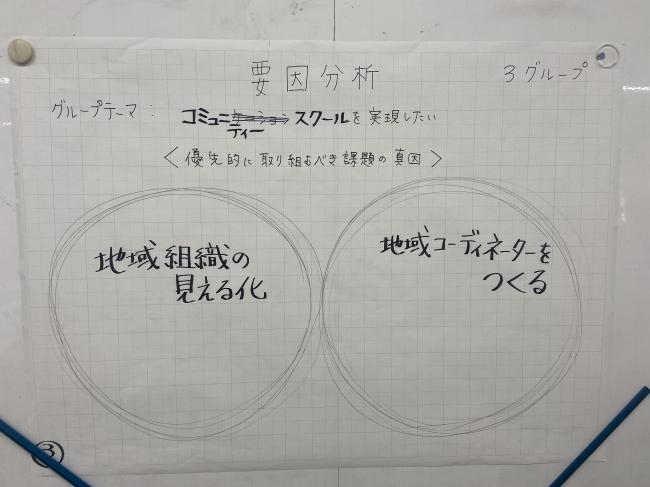 要因分析
3グループ
グループテーマ： コミュニティースクールを実現したい
〈優先的に取り組むべき課題の真因〉
地域組織の
見える化
地域コーディネーターを
つくる
③